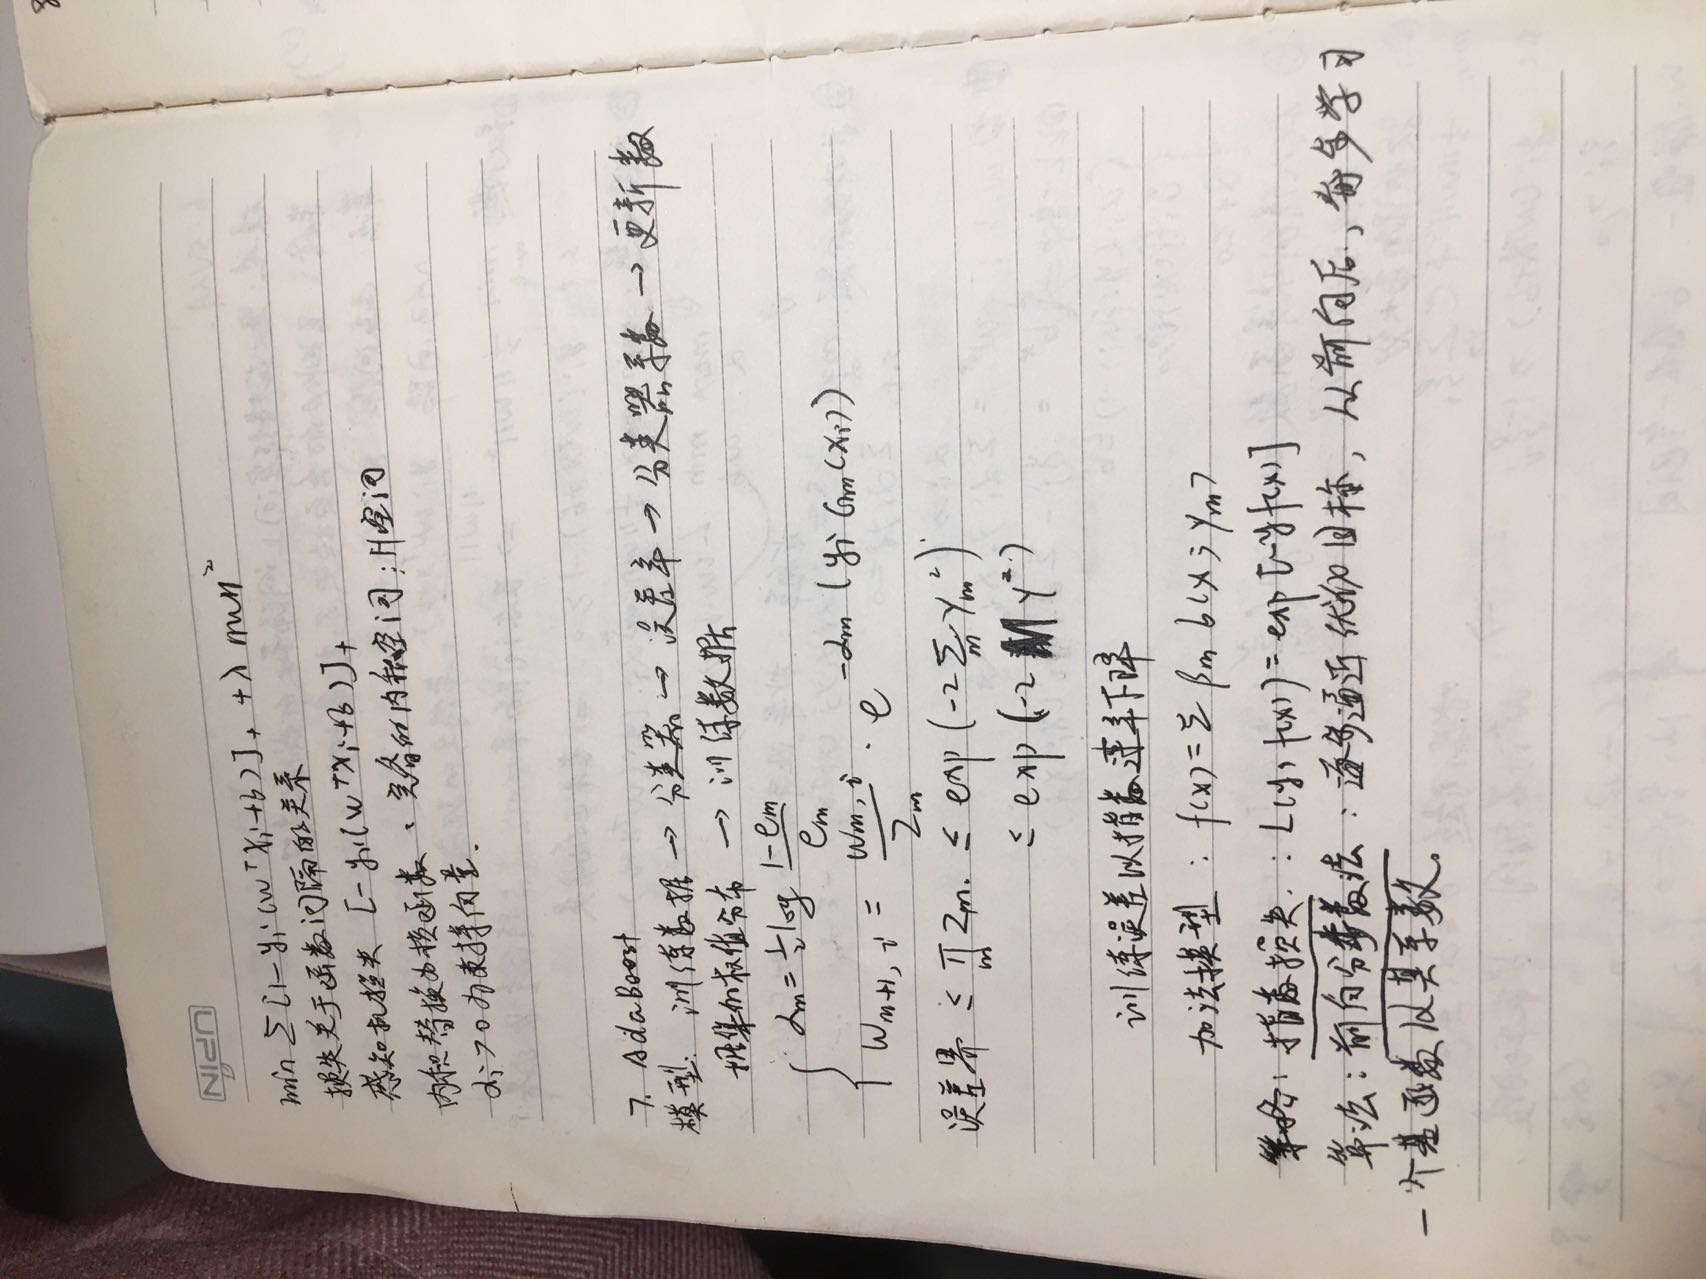 UPIN
min Σ [1-yᵢ(wᵀxᵢ+b)]₊ + λ||w||²
损失关于函数间隔的关系
感知机损失 [-yᵢ(wᵀxᵢ+b)]₊
内积替换为核函数。完备的内积空间：H空间
αᵢ>0为支持向量.
7. AdaBoost
模型: 训练数据→分类器→误差率→分类器系数→更新数
据集的权值分布→训练数据
αm = ½ log (1-em)/em
Wm+1,i = Wm,i/Zm · e^{-αm(yi Gm(xi))}
误差界 ≤ ∏m Zm. ≤ exp(-2 Σm γm²)
≤ exp(-2 M γ²)
训练误差以指数速率下降
加法模型: f(x)=Σ βm b(x; γm)
策略: 指数损失.: L(y, f(x)) = exp[-yf(x)]
算法: 前向分步算法: 逐步逼近优化目标, 从前向后, 每步学习
一个基函数及其系数。
8